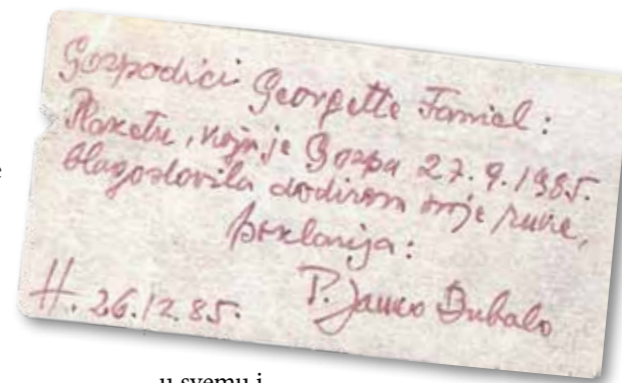 Gospodici Georgette Faniel:
Plaketu, koju je Gospa 27. 9. 1985.
blagoslovila dodirom moje ruke,
poklanja:
H. 26.12.85. P. Janko Bubalo
e
u svemu i